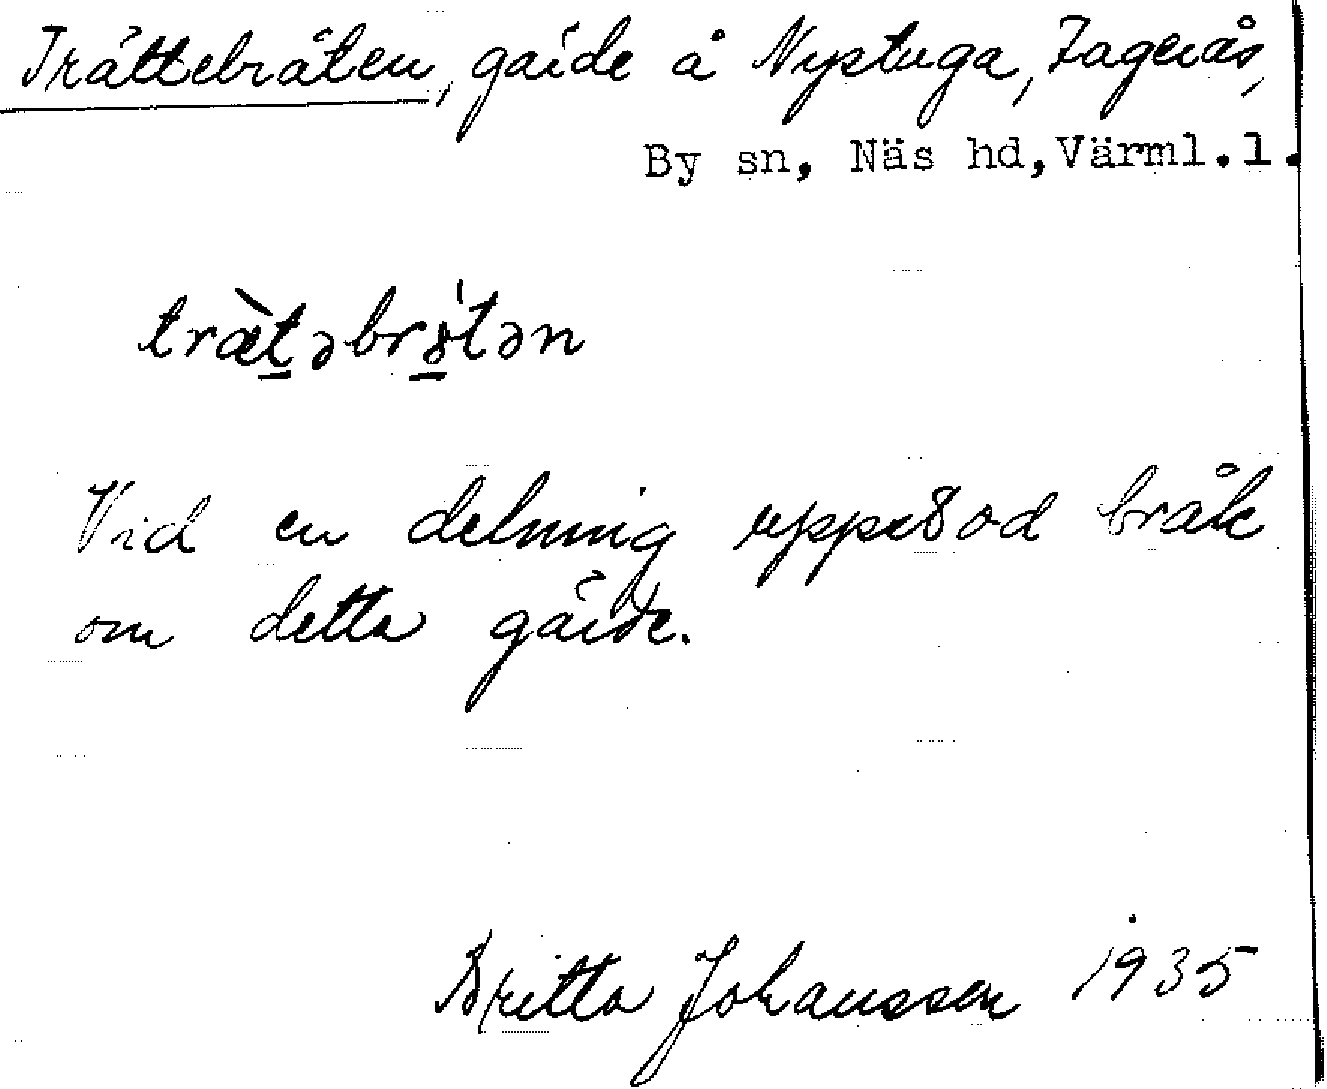 Trättebråten, gärde å Nystuga, Fagerås,
By sn, Näs hd, Värml.l.
træ̀təbrɤ́tən
Vid en delning uppstod bråk
om detta gärde.
Britta Johansson 1935